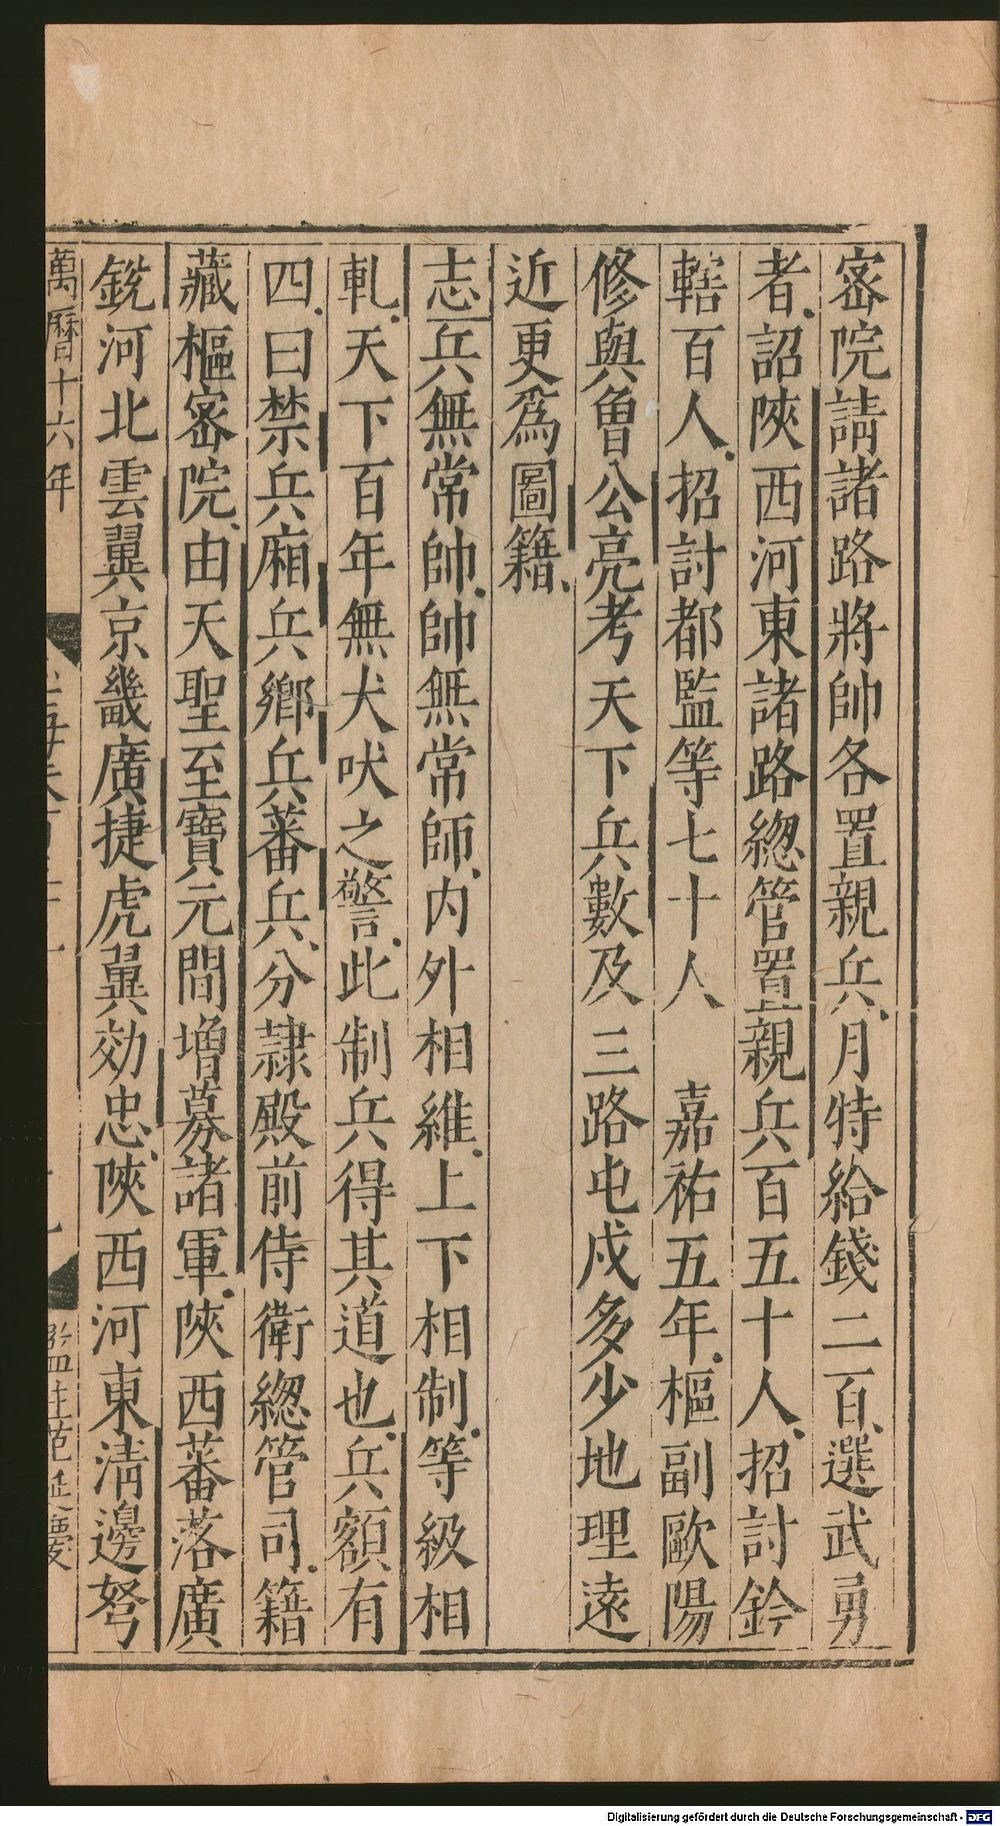 密院請諸路將帥各置親兵月特給錢二百選武勇
者詔陝西河東諸路緫管置親兵百五十人招討鈐
轄百人招討都監等七十人　嘉祐五年樞副歐陽
修與魯公亮考天下兵數及三路屯戍多少地理遠
近更爲圖籍
志兵無常帥帥無常師内外相維上下相制等級相
軋天下百年無犬吠之警此制兵得其道也兵額有
四曰禁兵廂兵鄉兵蕃兵分隷殿前侍衛緫管司籍
藏樞密院由天聖至寶元間增募諸軍陝西蕃落廣
銳河北雲翼京畿廣捷虎翼効忠陝西河東清邊弩
萬曆十六年
Digitalisierung gefördert durch die Deutsche Forschungsgemeinschaft - DFG